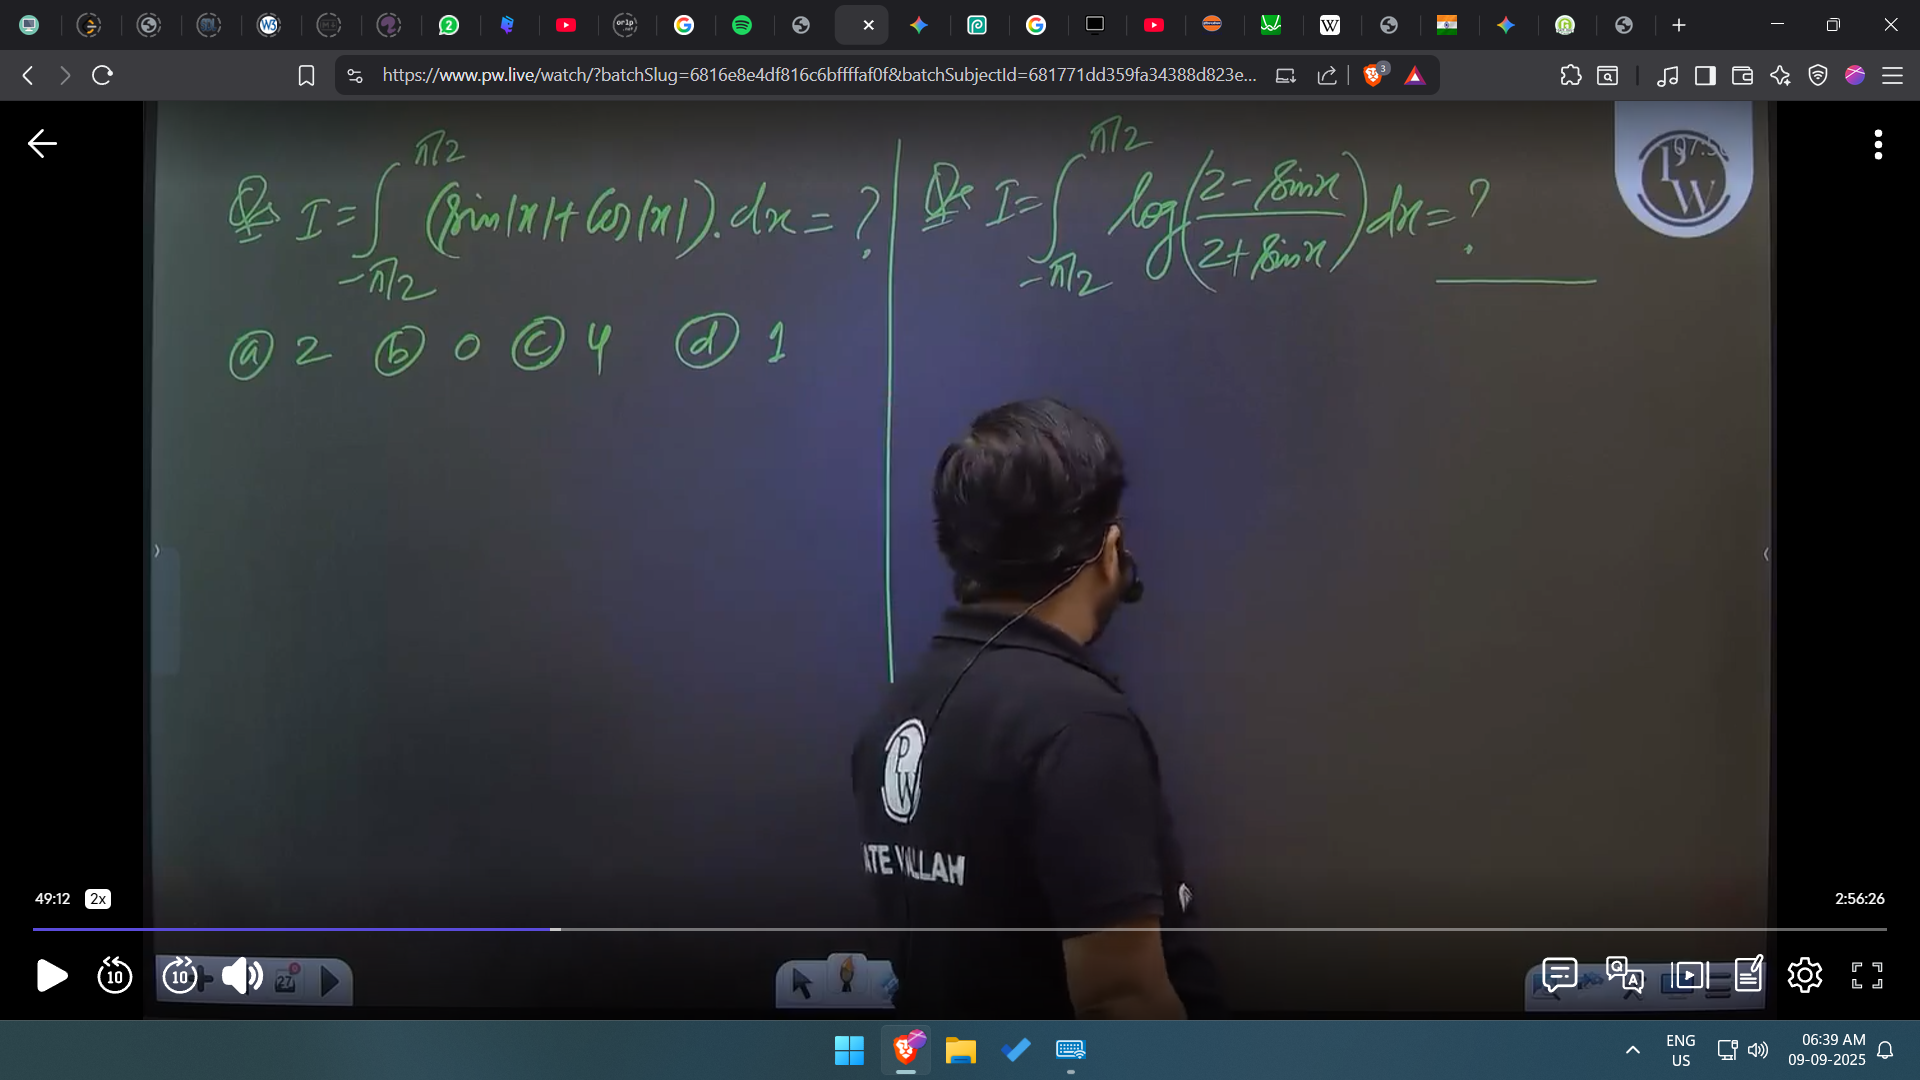 https://www.pw.live/watch/?batchSlug=6816e8e4df816c6bffffaf0f&batchSubjectId=681771dd359fa34388d823e...
3
Qs I = ∫_{-π/2}^{π/2} (sin|x| + Cos|x|). dx = ?
(a) 2 (b) 0 (c) 4 (d) 1
Qs I = ∫_{-π/2}^{π/2} log((2 - sinx)/(2 + sinx)) dx = ?
PW
PW
ATE WALLAH
49:12 2x
2:56:26
10
10
27
QA
ENG
US
06:39 AM
09-09-2025